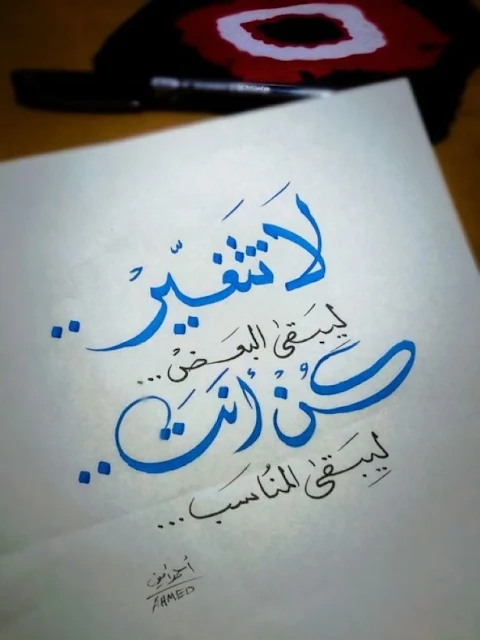 لا تتغيّرْ ..
لِيَبقىٰ البَعضْ ...
كُنْ أنتَ ..
لِيَبقىٰ المُناسَب ...
أحمد
AHMED